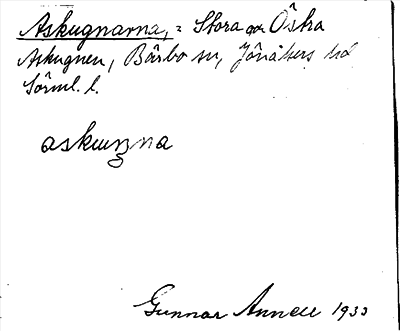 Askugnarna, = Stora och Östra
Askugnen, Bärbo sn, Jönåkers hd
Sörml. l.
askuŋna
Gunnar Annell 1933